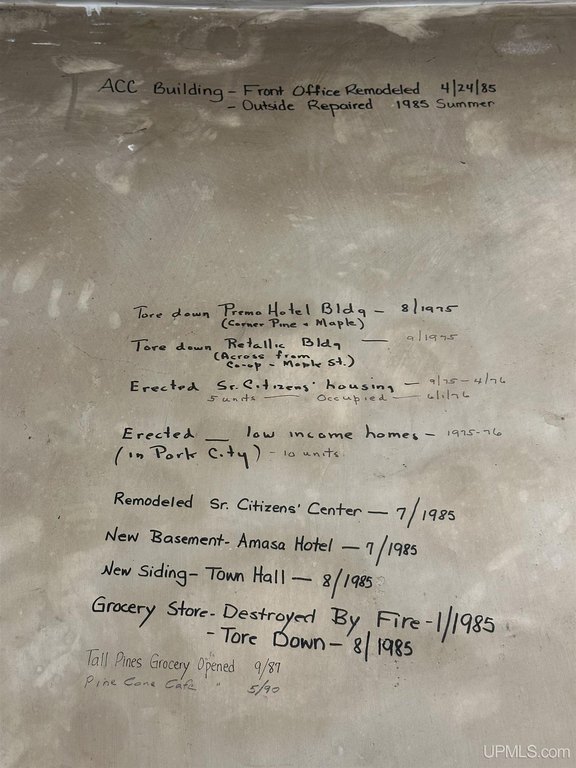 ACC Building - Front Office Remodeled 4/24/85
- Outside Repaired 1985 Summer
Tore down Premo Hotel Bldg - 8/1975
(Corner Pine + Maple)
Tore down Retallic Bldg — 9/1975
(Across from
Co-op - Maple St.)
Erected Sr. Citizens' housing — 9/75 - 4/76
5 units — Occupied — 6/1/76
Erected __ low income homes - 1975-76
(in Park City) - 10 units
Remodeled Sr. Citizens' Center — 7/1985
New Basement - Amasa Hotel — 7/1985
New Siding - Town Hall — 8/1985
Grocery Store - Destroyed By Fire - 1/1985
- Tore Down - 8/1985
Tall Pines Grocery Opened 9/87
Pine Cone Cafe " 5/90
UPMLS.com